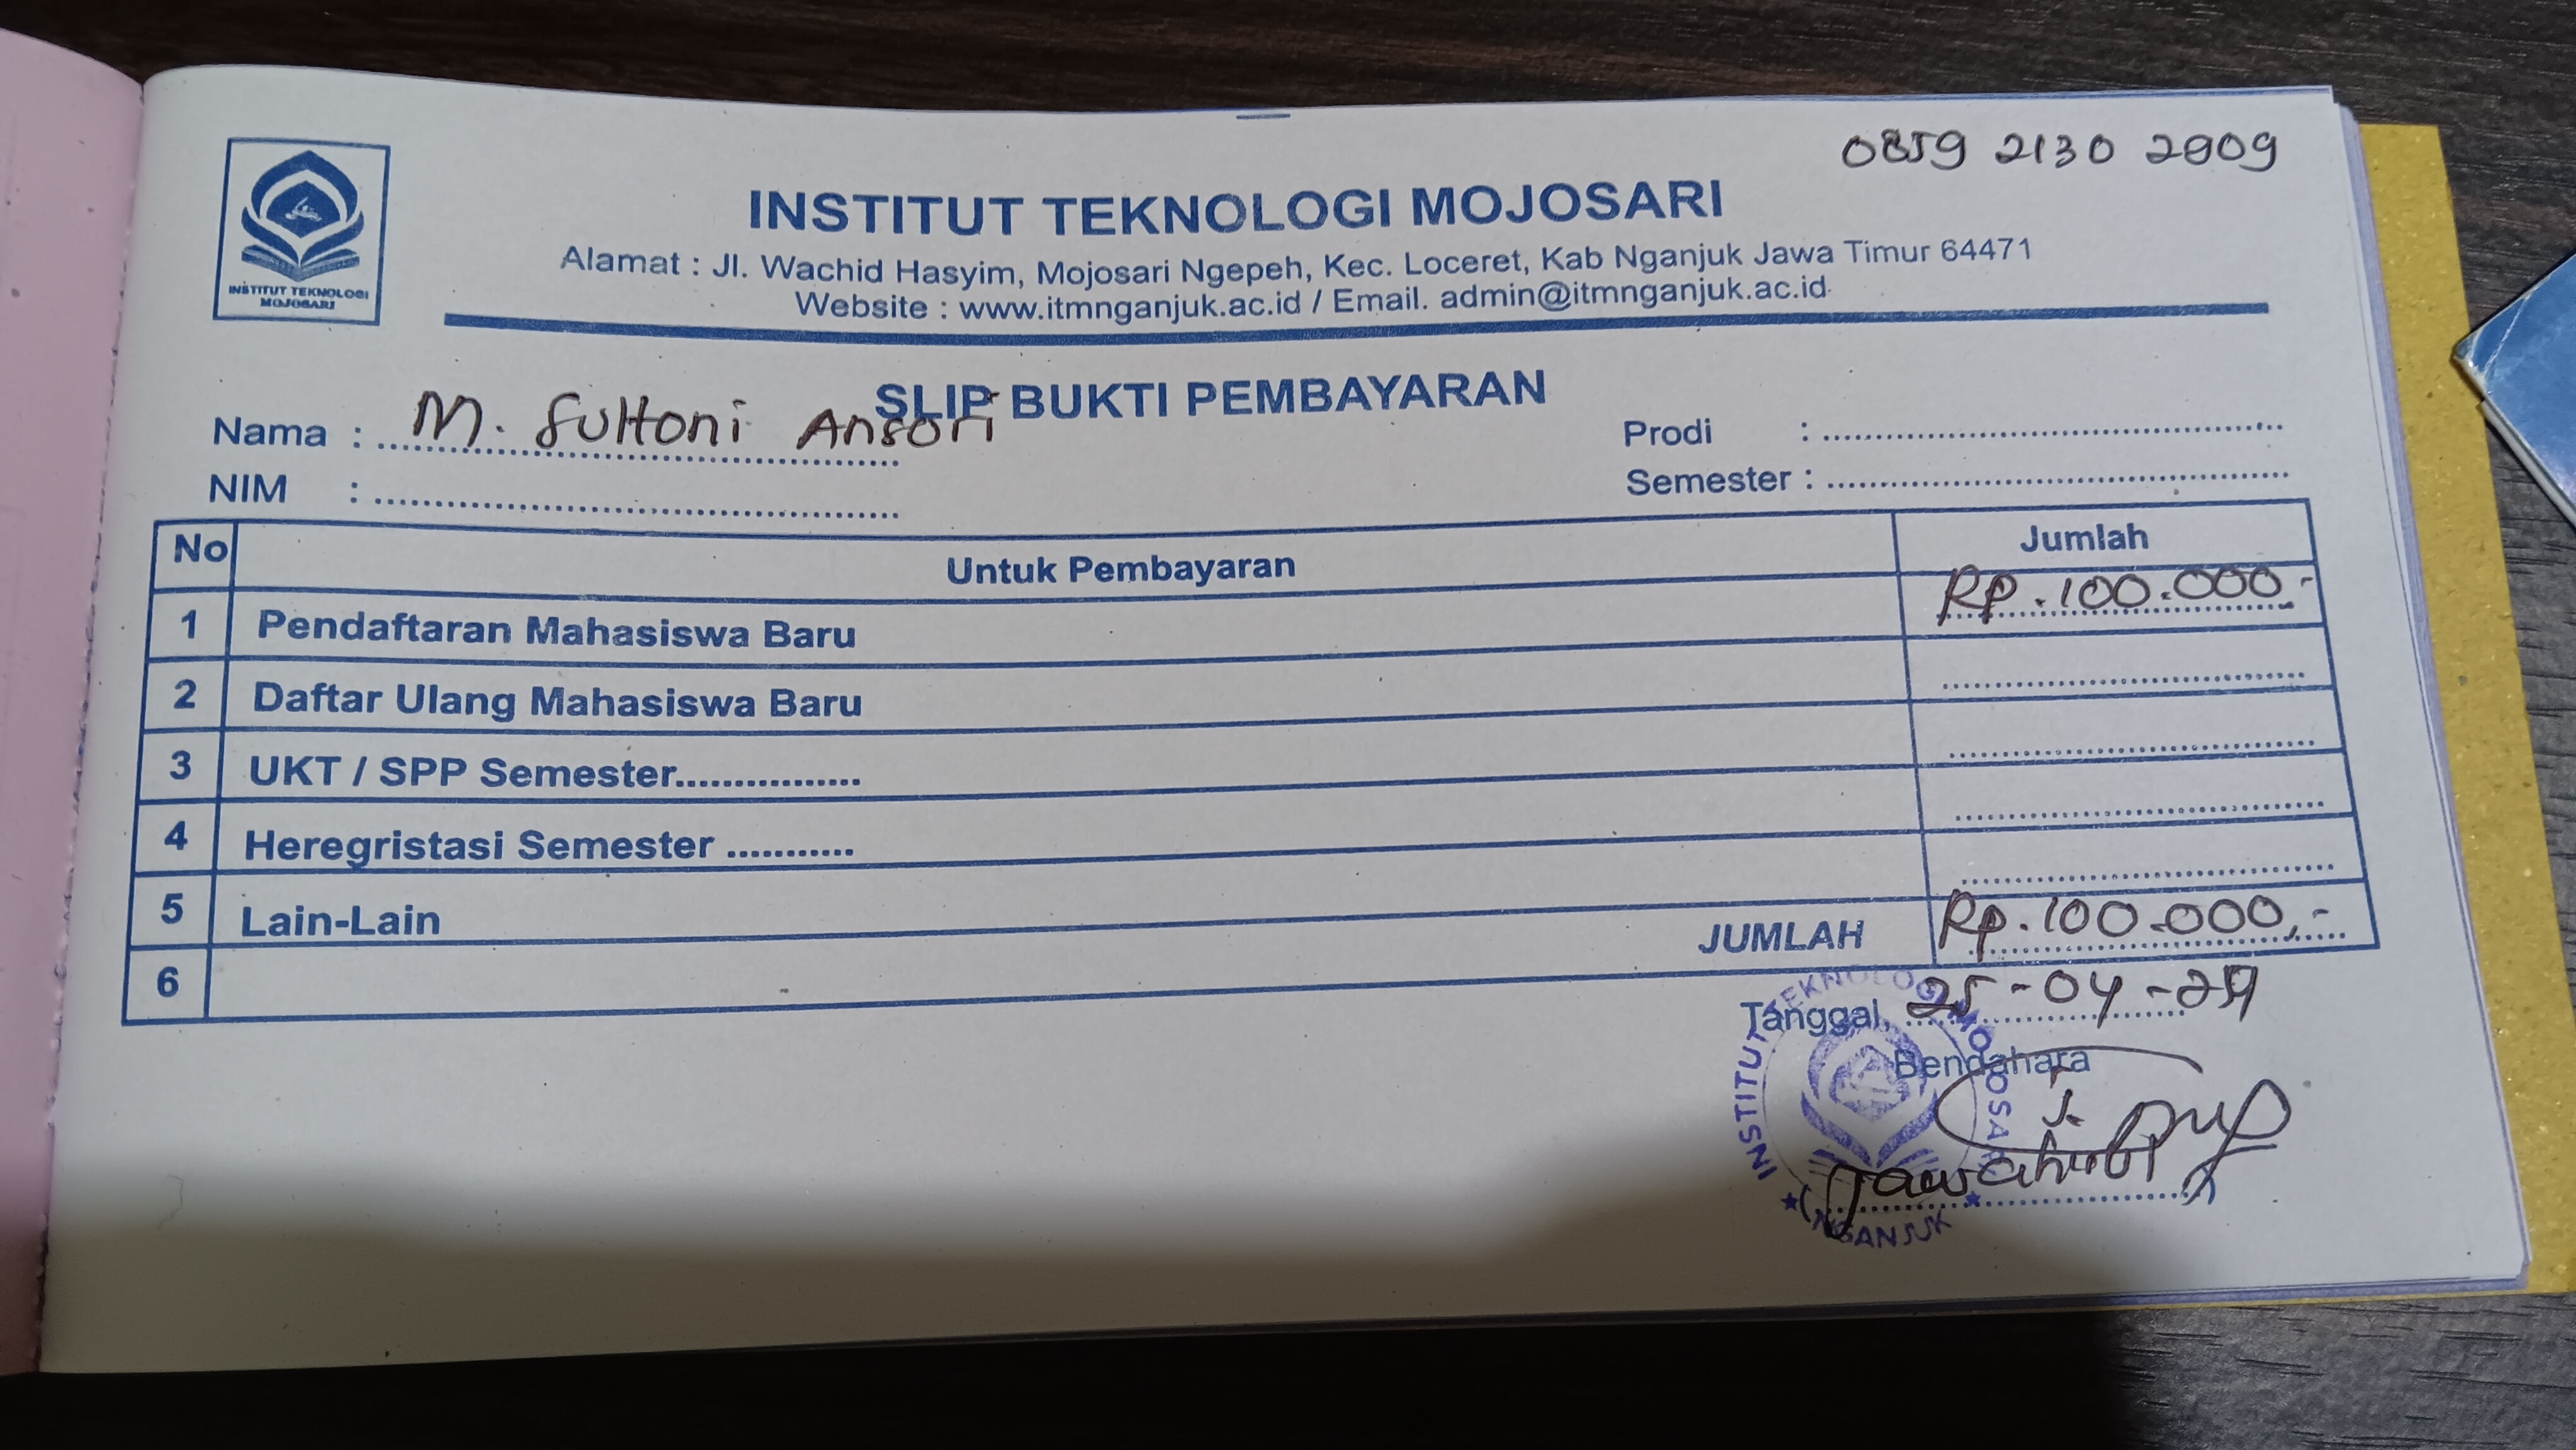 0859 2130 2909
INSTITUT TEKNOLOGI MOJOSARI
INSTITUT TEKNOLOGI MOJOSARI
Alamat : Jl. Wachid Hasyim, Mojosari Ngepeh, Kec. Loceret, Kab Nganjuk Jawa Timur 64471
Website : www.itmnganjuk.ac.id / Email. admin@itmnganjuk.ac.id
SLIP BUKTI PEMBAYARAN
Nama : M. Sultoni Ansori
NIM : ........................................
Prodi : ........................................
Semester : ........................................
No Untuk Pembayaran Jumlah
1 Pendaftaran Mahasiswa Baru Rp.100.000.-
2 Daftar Ulang Mahasiswa Baru
3 UKT / SPP Semester................
4 Heregristasi Semester ...........
5 Lain-Lain
6 JUMLAH Rp.100.000,-
Tanggal, 25-04-
Bendahara
INSTITUT TEKNOLOGI MOJOSARI
NGANJUK